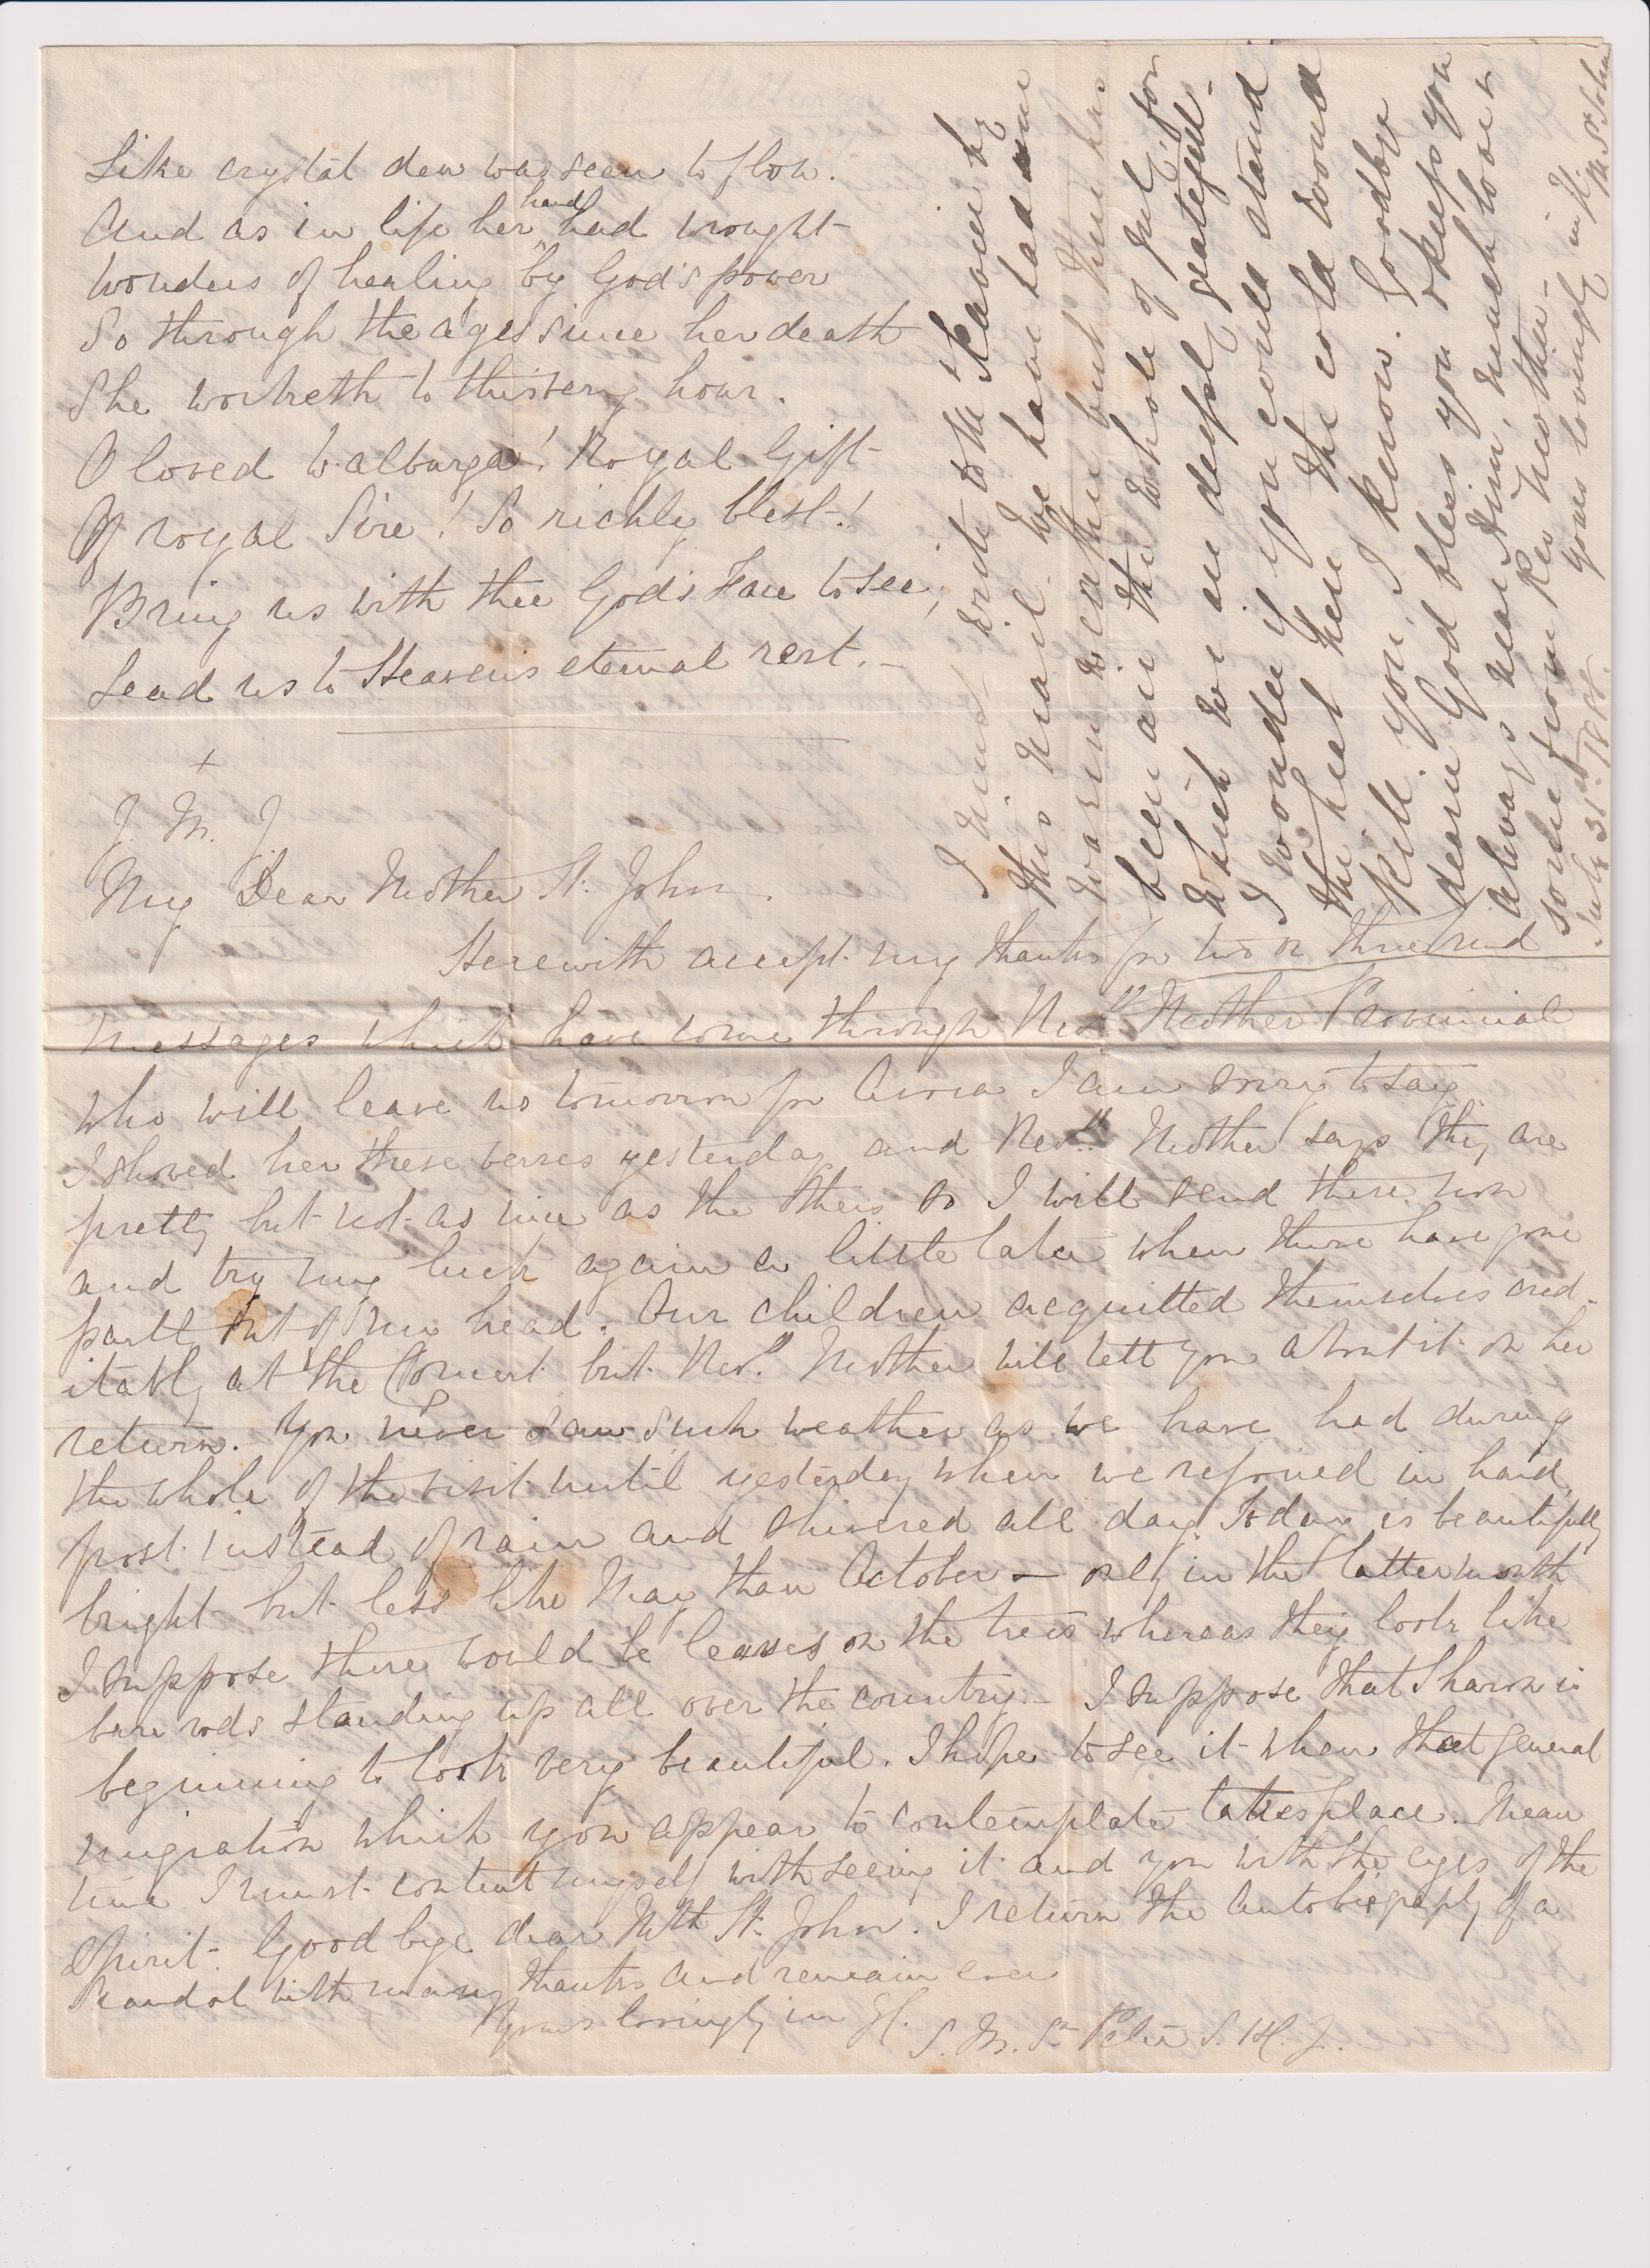 Like crystal dew was seen to flow.
And as in life her hand had wrought
Wonders of healing by God's power
So through the ages since her death
She worketh to this very hour.
O loved Walburga! Royal Gift
Of royal Sire! So richly blest!
Bring us with thee God's Face to see,
Lead us to Heaven's eternal rest. –
+
J. M. J.
My Dear Mother St. John,
Herewith accept my thanks for two or three kind
messages which have come through Revd. Mother Provincial
who will leave us tomorrow for I am sorry to say
I showed her these verses yesterday and Revd. Mother says they are
pretty but not as nice as the others so I will send these now
and try my luck again a little later when these have gone
partly out of my head. Our children acquitted themselves cred-
itably at the Concert but Revd. Mother will tell you about it on her
return. You never saw such weather as we have had during
the whole of the visit until yesterday when we rejoiced in hard
frost instead of rain and shivered all day. Today is beautifully
bright but less like May than October – only in the latter month
I suppose there would be leaves on the trees whereas they look like
bare rods standing up all over the country. – I suppose that Sharow is
beginning to look very beautiful. I hope to see it when that general
migration which you appear to contemplate takes place. Mean
time I must content myself with seeing it and you with the eyes of the
spirit. Good bye dear Mth. St. John. I return the autobiography of a
with many thanks and remain ever
Yours lovingly in
S. M. St. Peter S. H. J.
I must write to the by
this mail. We have had some
warm weather but there has
been air the whole of July, for
which we are deeply grateful.
I wonder if you could stand
the heat here the cold would
kill you, I know. Goodbye
dear God bless you & keep you
always near Him, much love &
some from Rev Mother –
yours lovingly in
M. St. John
July 31st. 188